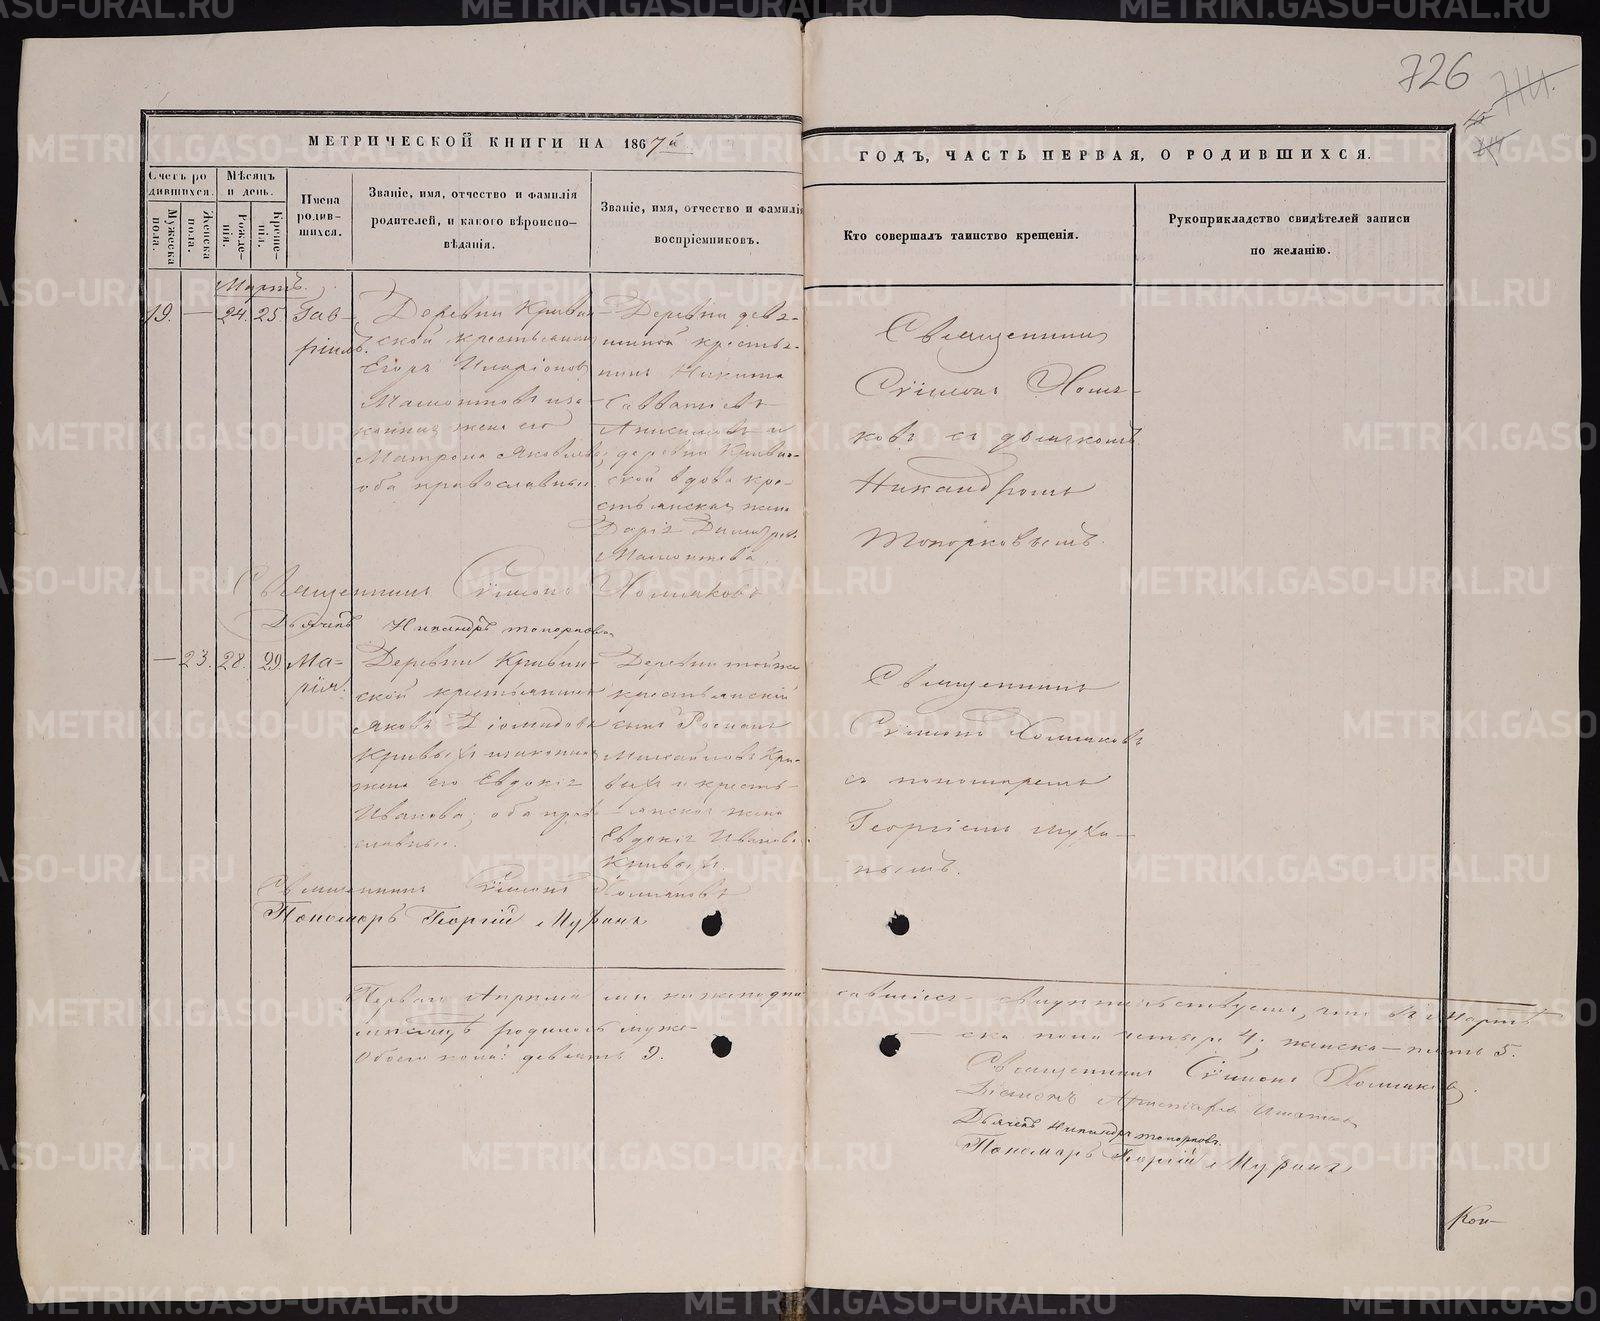 726
МЕТРИЧЕСКОЙ КНИГИ НА 1867й
ГОДЪ, ЧАСТЬ ПЕРВАЯ, О РОДИВШИХСЯ.
Счетъ ро
дившихся.
Мужеска
пола.
Женска
пола.
Мѣсяцъ
и день.
Рожде-
нія.
Креще-
нія.
Имена
родив-
шихся.
Званіе, имя, отчество и фамилія
родителей, и какого вѣроиспо-
вѣданія.
Званіе, имя, отчество и фамилія
воспріемниковъ.
Кто совершалъ таинство крещенія.
Рукоприкладство свидѣтелей записи
по желанію.
Мартъ.
19. — 24. 25. Гав-
ріилъ.
Деревни Кривин
ской крестьянинъ
Егоръ Иларіоновъ
Мамонтовъ и за
конная жена его
Матрона Яковлева;
оба православные.
Деревни
крестья-
нинъ Никита
Савватіевъ
и
деревни Кривин-
ской вдова кре-
стьянская жена
Дарія Димитріева
Мамонтова.
Священникъ
Сѵмеонъ Холмя-
ковъ съ дьячкомъ
Никандромъ
Топорковымъ.
Священникъ Сѵмеонъ Холмяковъ
Дьячекъ Никандръ Топорковъ
— 23. 28. 29 Ма-
рія.
Деревни Кривин-
ской крестьянинъ
Яковъ Діомидовъ
Кривыхъ и законная
жена его Евдокія
Иванова; оба право
славные.
Деревни тойже
крестьянскій
сынъ Романъ
Михайловъ Кри-
выхъ и кресть-
янская жена
Евдокія Иванова
Кривыхъ.
Священникъ
Сѵмеонъ Холмяковъ
съ пономаремъ
Георгіемъ Муха-
нымъ.
Священникъ Сѵмеонъ Холмяковъ
Пономарь Георгій
Перваго Апрѣля мы нижеподписавшіеся свидѣтельствуемъ, что въ Мартѣ
мѣсяцѣ родилось муже-ска пола четыре 4; женска — пять 5.
Обоего пола: девять 9.
Священникъ Сѵмеонъ Холмяковъ.
Діаконъ
Дьячекъ Никандръ Топорковъ.
Пономарь Георгій
Кон-
METRIKI.GASO-URAL.RU